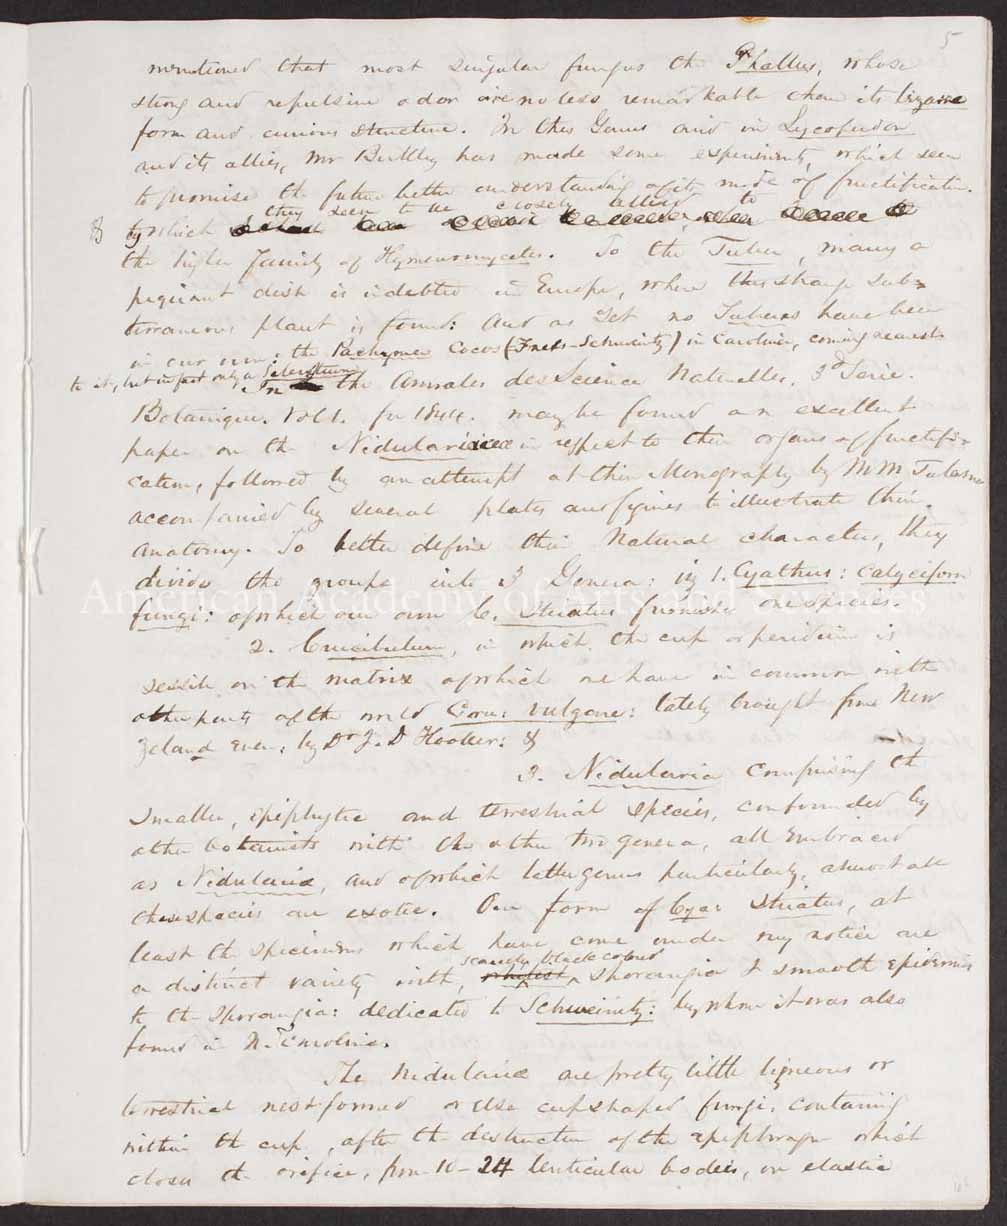 5
mentioned that most singular fungus the Phallus, whose
strong and repulsive odor are no less remarkable than its bizarre
form and curious structure. In this Genus and in Lycoperdon
and its allies, Mr Berkley has made some experiments, which seem
to promise the future better understanding of its mode of fructification.
& by which they seem to be closely allied to
the higher family of Hymenomycetes. To the Tuber, many a
piquant dish is indebted in Europe, where this strange sub-
terraneous plant is found: and as yet no Tubers have been
in our own: the Pachyma Cocos (Fries-Schweinitz) in Carolina, coming nearest
to it, but in fact only a Sclerotium
In the Annales des Science Naturelles, 3d Serie.
Botanique. Vol 1. for 1844. may be found an excellent
paper on the Nidulariaceae in respect to their organs of fructifi-
cation, followed by an attempt at their Monography by MM Tulasne
accompanied by several plates and figures to illustrate their
anatomy. To better define their Natural characters, they
divide the groups into 3 Genera: viz 1. Cyathus: calyciform
fungi: of which our own C. striatus furnishes one species.
2. Crucibulum, in which the cup or peridium is
sessile on the matrix of which we have in common with
other parts of the world Cruc: vulgare: lately brought from New
Zeland even; by Dr J. D Hooker: &
3. Nidularia comprising the
smaller, epiphytic and terrestrial species, confounded by
other botanists with the other two genera, all embraced
as Nidularia, and of which latter genus particularly, almost all
these species are exotic. Our form of Cya: striatus, at
least the specimens which have come under my notice are
a distinct variety with, scarcely black colored sporangia & smooth epidermis
to the sporangia: dedicated to Schweinitz: by whom it was also
found in N. Carolina.
The Nidulariae are pretty little ligneous or
terrestrial nest formed or else cupshaped fungi, containing
within the cup, after the destruction of the epiphragm which
closes the orifice, from 10-24 lenticular bodies, on elastic
American Academy of Arts and Sciences